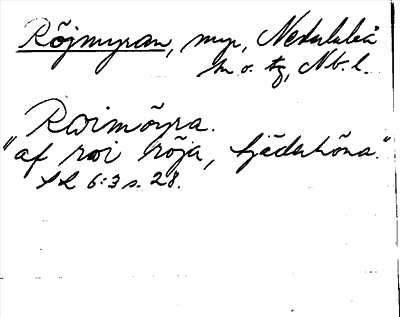 Röjmyran, myr, Nederluleå
sn o. tg, Nb. l.
Roimöyra.
"af roi röja, tjäderhöna."
SL 6:3 s. 28.